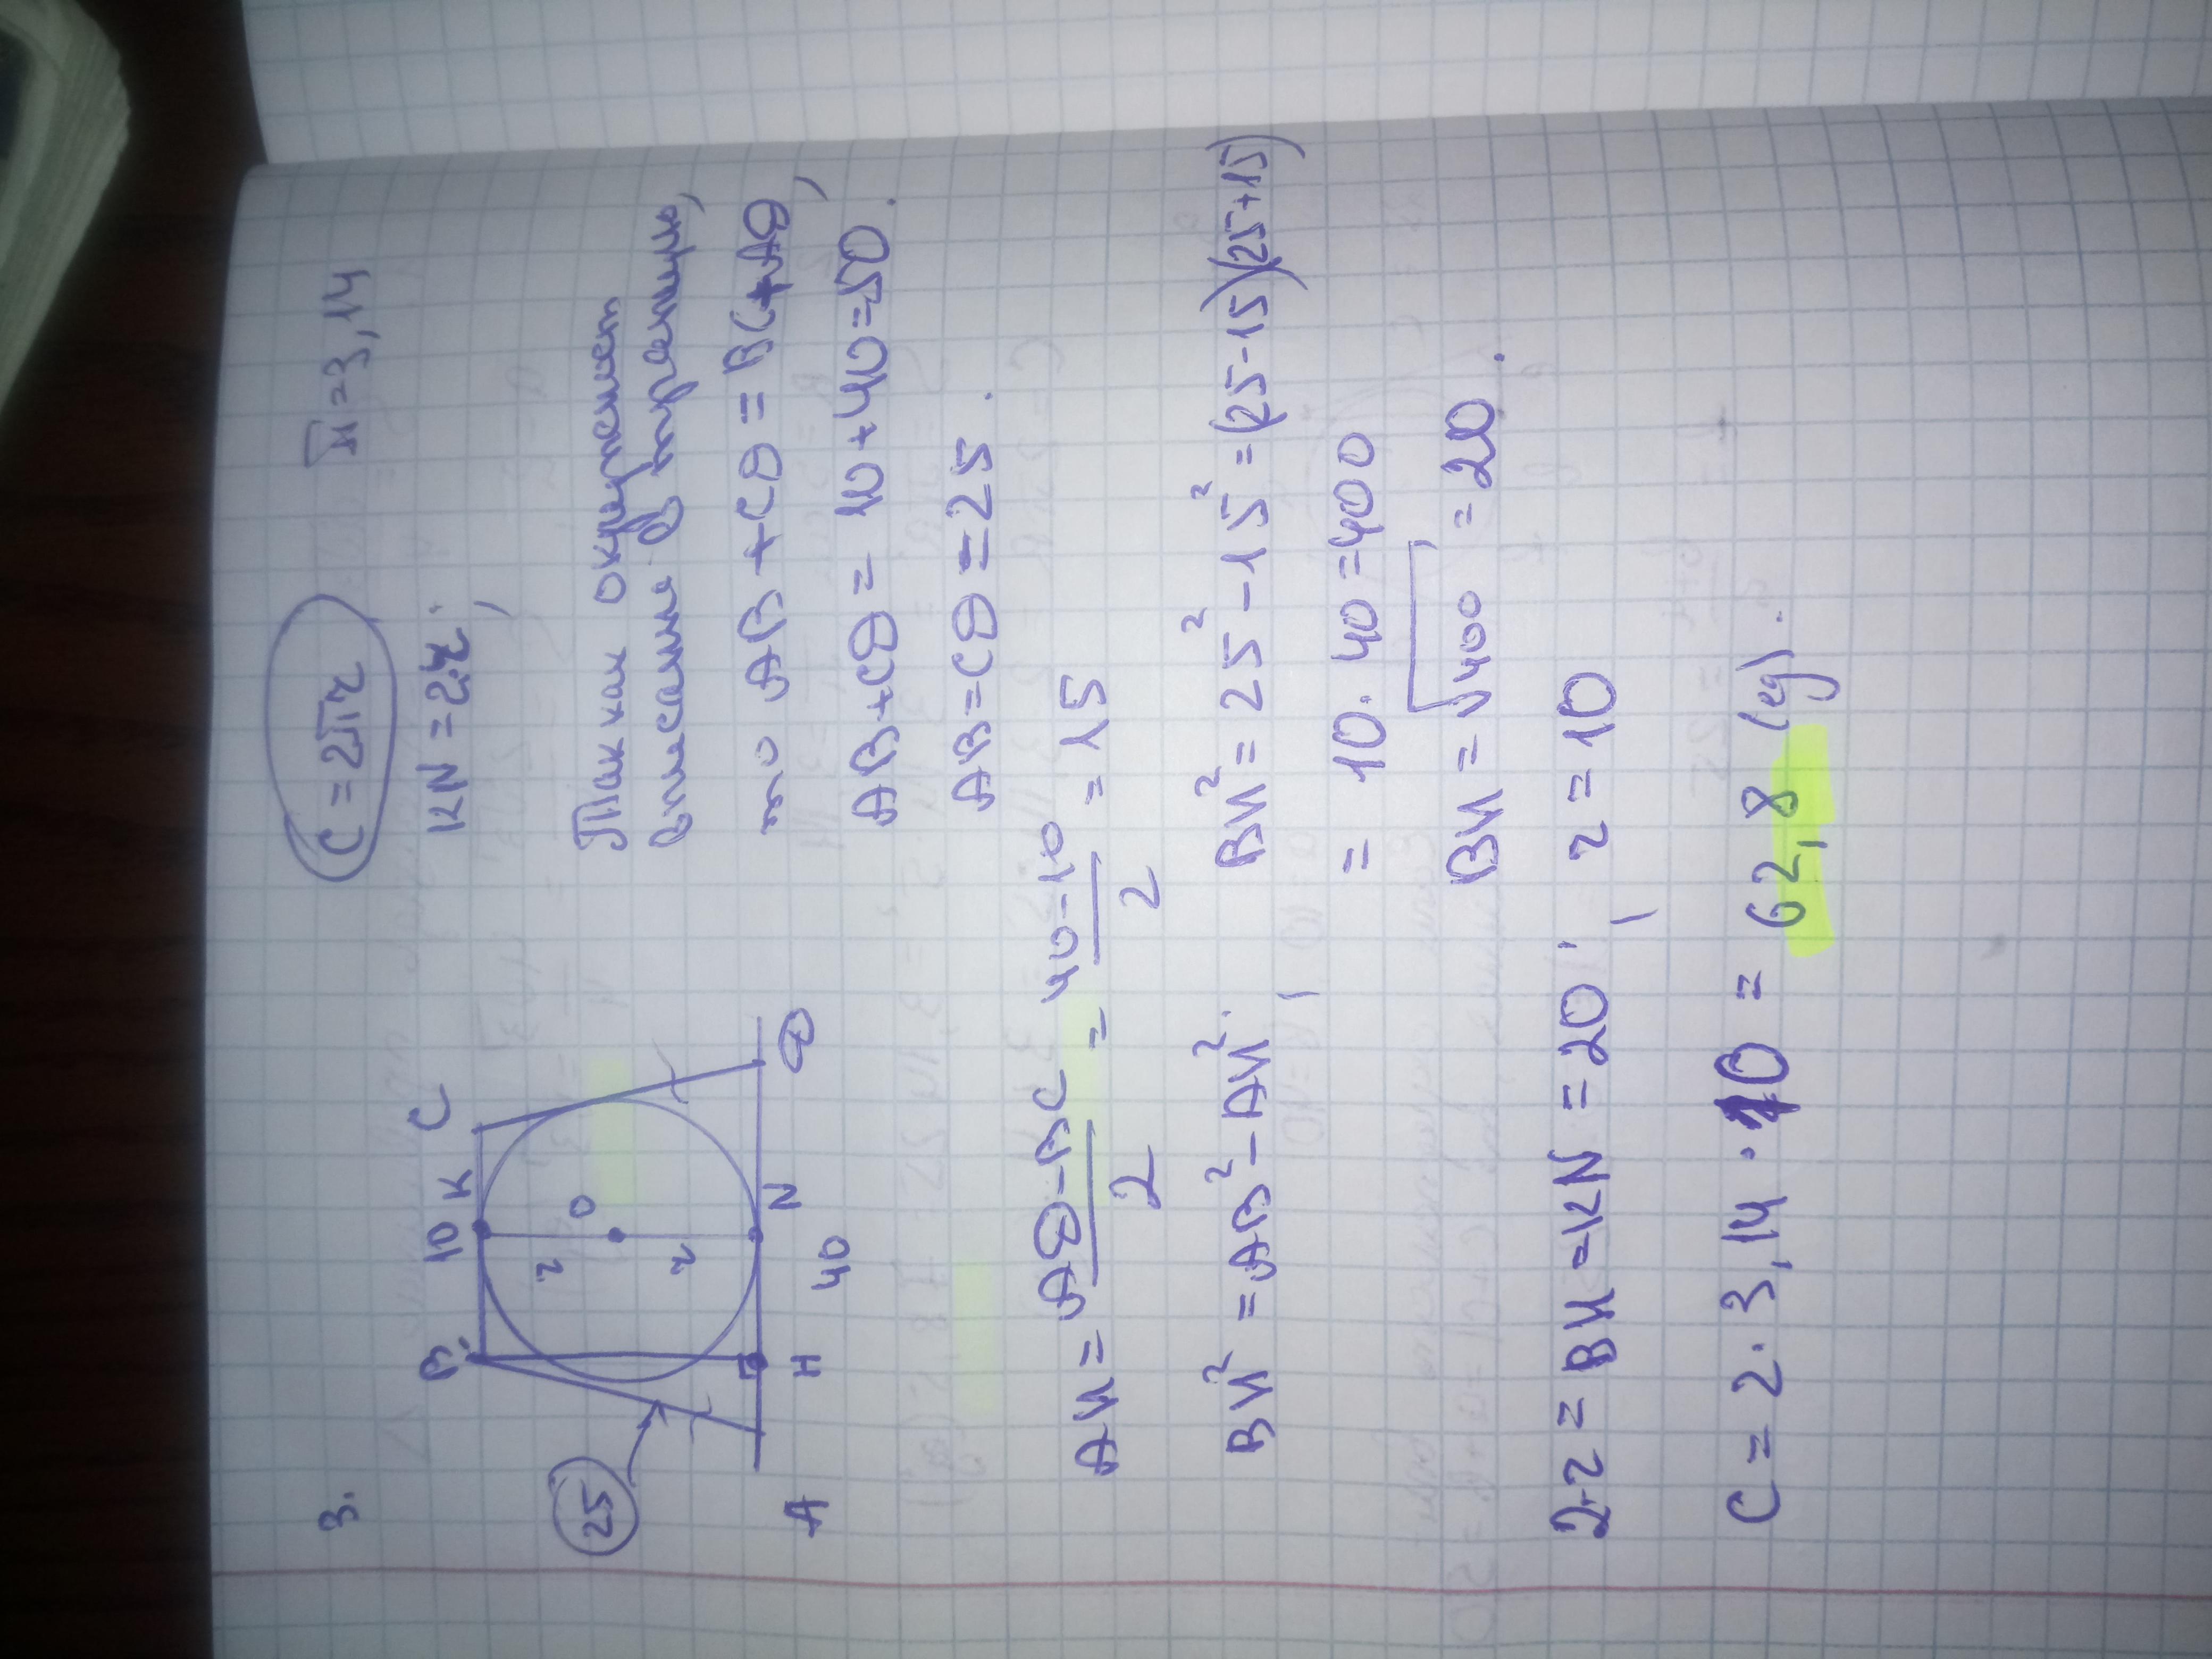 3.
C = 2πr
π = 3,14
B 10 K C
KN = 2r;
25
r O
r
A H N D
40
Так как окружность
вписана в трапецию,
то AB + CD = BC + AD,
AB + CD = 10 + 40 = 50.
AB = CD = 25.
AH = AD - BC / 2 = 40 - 10 / 2 = 15
BH² = AB² - AH²; BH² = 25² - 15² = (25-15)(25+15)
= 10 · 40 = 400
BH = √400 = 20.
2·r = BH = KN = 20; r = 10
C = 2 · 3,14 · 10 = 62,8 (ед).